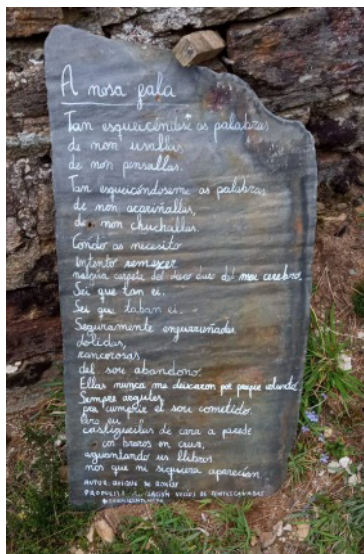 A nosa fala
Tan esqueicéndose as palabras
de non usallas
de non pensallas.
Tan esqueicéndoseme as palabras
de non acariñallas,
de non chuchallas.
Condo as necesito
intento remexer
carpeta del disco duro del meu cerebro.
Sei que tan ei.
Sei que taban ei.
Seguramente engurruñadas
dolidas,
rancorosas
del sou abandono.
Ellas nunca me deixaron por propia voluntá
Sempre
por cumprir el sou cometido.
Pero eu
castigueilas de cara a parede
cos brazos en cruz,
aguantando us llibros
nos que ni siquiera aparecían.
AUTOR: QUIQUE DE ROXÍOS
PROPOSTA VECÍOS DE